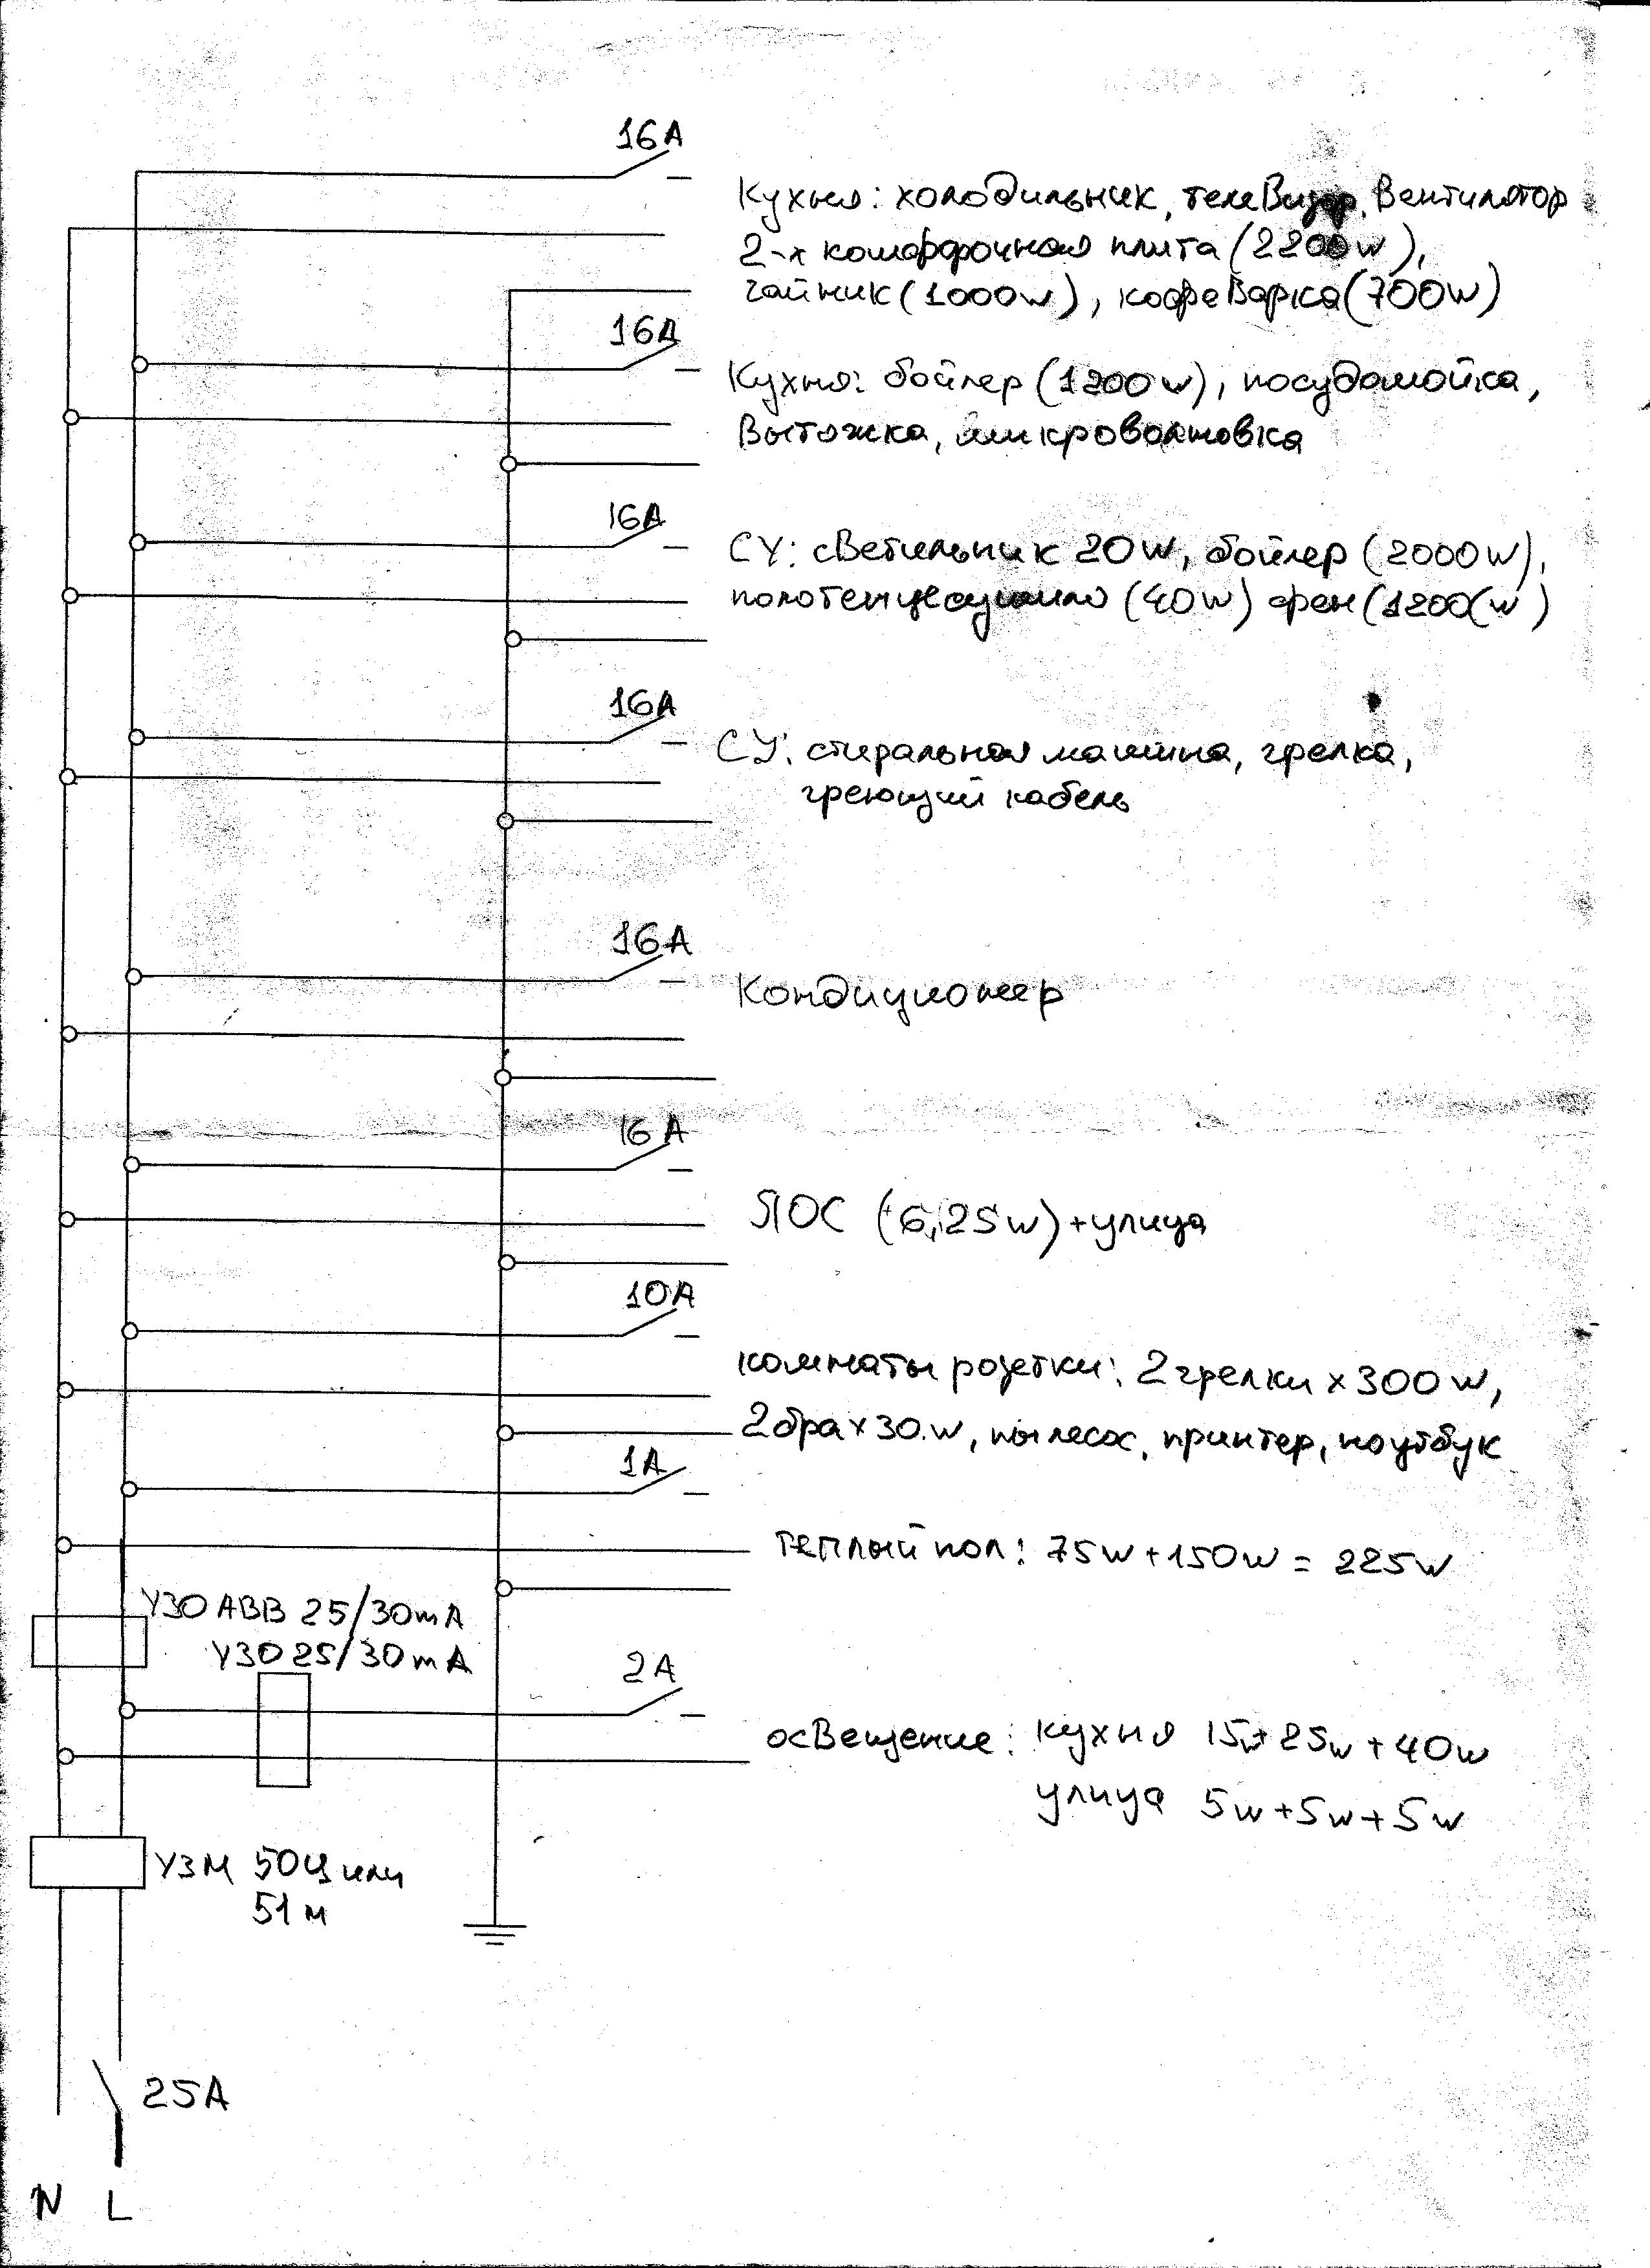 16А
Кухня: холодильник, телевизор, вентилятор
2-х комфорочная плита (2200w),
чайник (1000w), кофеварка (700w)
16А
Кухня: бойлер (1200w), посудомойка,
Вытяжка, микроволновка
16А
СУ: светильник 20w, бойлер (2000w),
полотенцесушило (40w) фен (1200(w)
16А
СУ: стиральная машина, грелка,
греющий кабель
16А
Кондиционер
16А
ЛОС (6,25w) + улица
10А
комнаты розетки: 2 грелки х 300w,
2 бра х 30.w, пылесос, принтер, ноутбук
1А
теплый пол: 75w + 150w = 225w
УЗО АВВ 25/30mA
УЗО 25/30mA
2А
освещение: кухня 15w+ 25w + 40w
улица 5w + 5w + 5w
УЗМ 50Ц или
51м
25А
N L